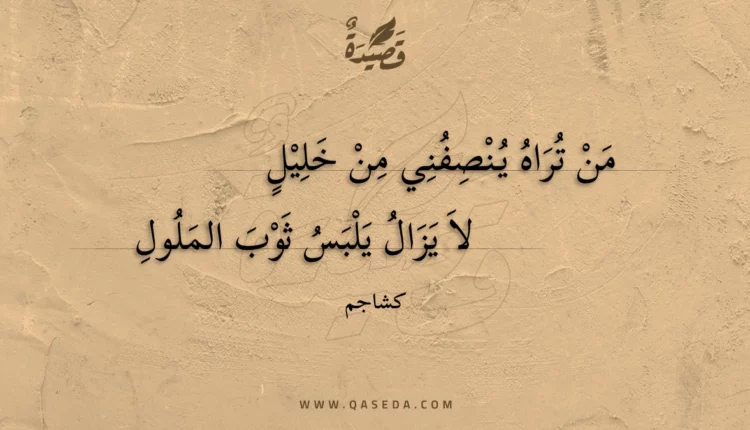 قَصِيدَةٌ
مَنْ تُرَاهُ يُنْصِفُنِي مِنْ خَلِيْلٍ
لاَ يَزَالُ يَلْبَسُ ثَوْبَ المَلُولِ
كشاجم
WWW.QASEDA.COM